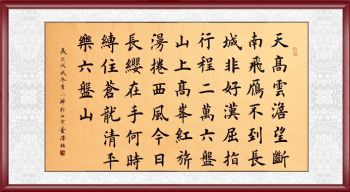 天髙雲澹望斷
南飛雁不到長
城非好漢屈指
行程二萬六盤
山上髙峯紅旂
漫捲西風今日
長纓在手何時
縛住蒼龍清平
樂六盤山
歲次戊戌冬